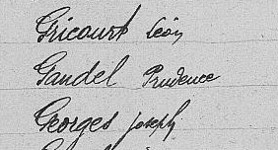 Gricourt Léon
Gandel Prudence
Georges Joseph